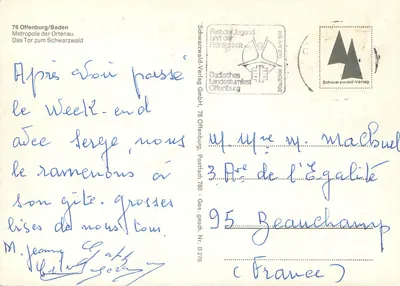 76 Offenburg/Baden
Metropole der Ortenau
Das Tor zum Schwarzwald
Après avoir passé
le week-end
avec Serge, nous
le ramenons à
son gîte. grosses
bises de nous tous.
M. Jeanne
Schwarzwald-Verlag GmbH, 76 Offenburg, Postfach 780 · Ges. gesch. Nr. O 276
Fest der Jugend
und der
Fröhlichkeit
Badisches
Landesturnfest
Offenburg
Schwarzwald-Verlag
M. Mme M.
3 Are de l'Égalité
95 Beauchamp
(France)